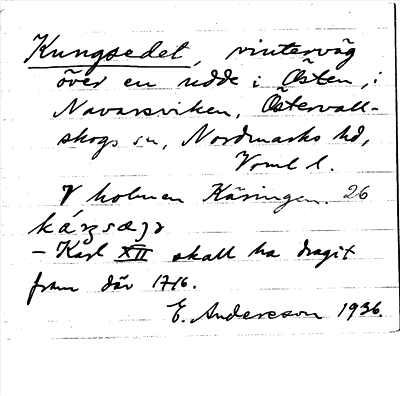 Kungsedet, vinterväg
över en udde i Östen, i
Navarsviken, Östervall-
skogs sn, Nordmarks hd,
Vrml l.
V holmen Käringen. 26
– Karl XII skall ha dragit
fram där 1716.
E. Andersson 1936.